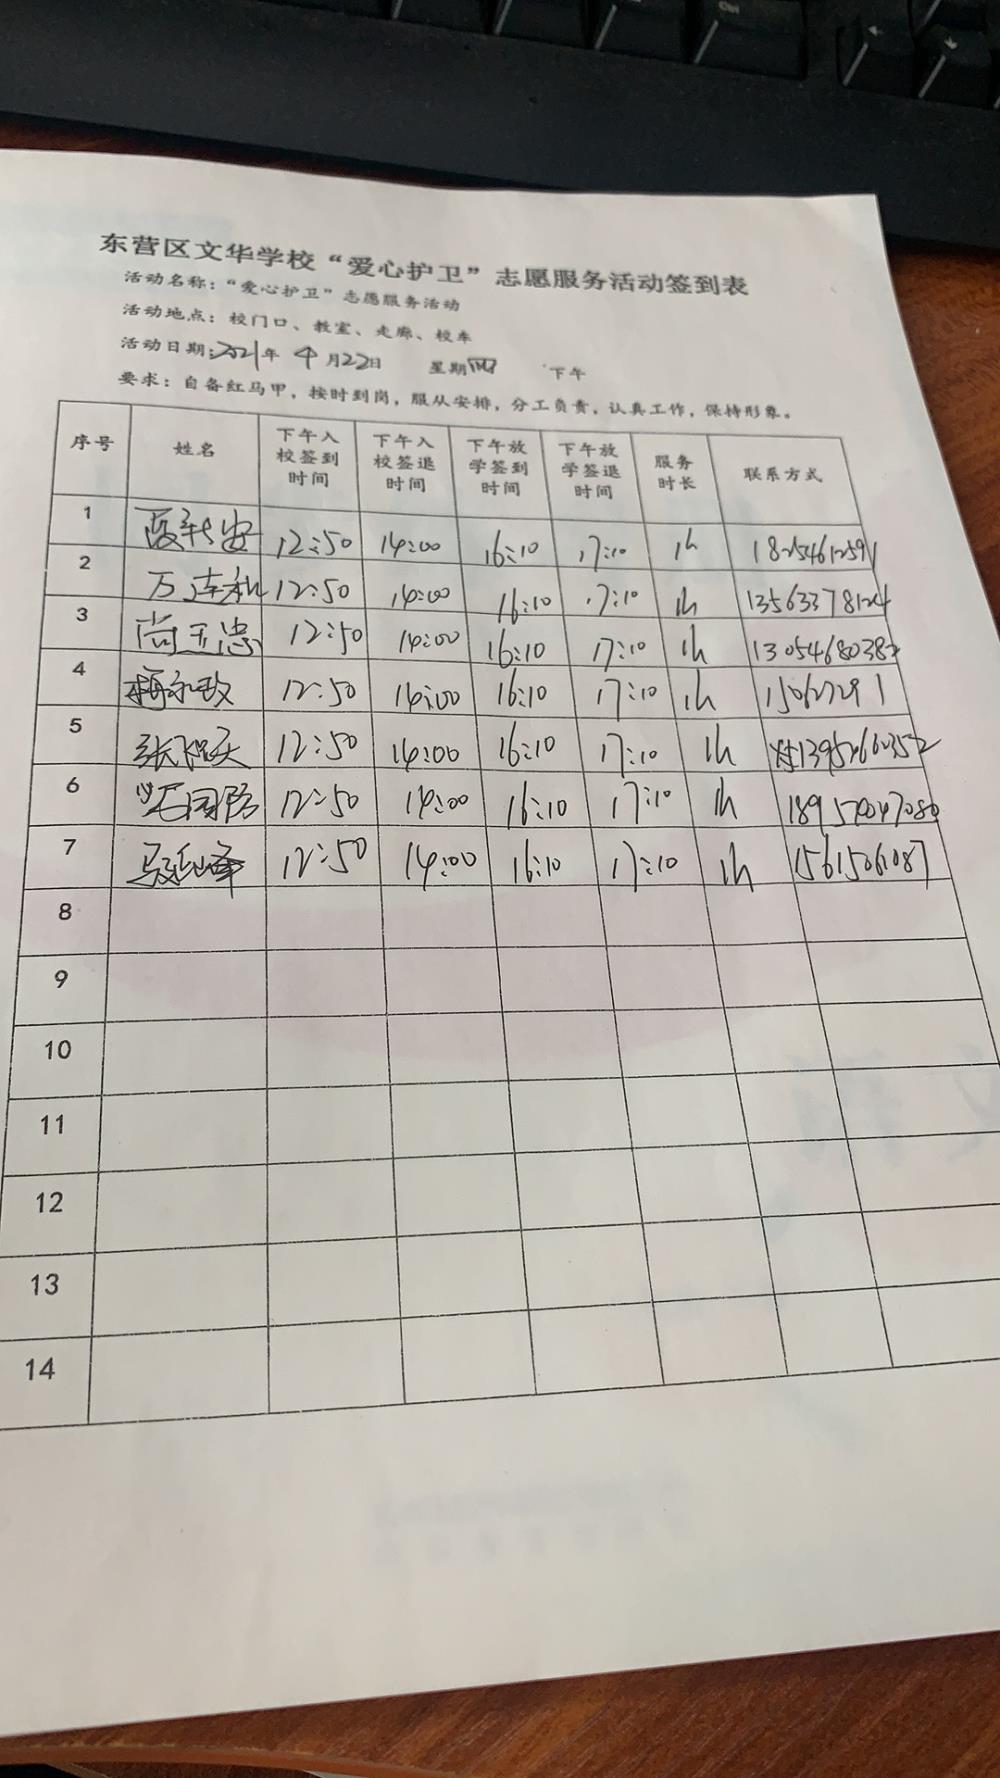 东营区文华学校“爱心护卫”志愿服务活动签到表
活动名称：“爱心护卫”志愿服务活动
活动地点：校门口、教室、走廊、校车
活动日期：2021年 4月22日 星期四 下午
要求：自备红马甲，按时到岗，服从安排，分工负责，认真工作，保持形象。
序号 姓名 下午入校签到时间 下午入校签退时间 下午放学签到时间 下午放学签退时间 服务时长 联系方式
1 12:50 14:00 16:10 17:10 1h 18254612591
2 万连和 12:50 14:00 16:10 17:10 1h 13563378124
3 尚玉忠 12:50 14:00 16:10 17:10 1h 13054680382
4 12:50 14:00 16:10 17:10 1h
5 12:50 14:00 16:10 17:10 1h
6 12:50 14:00 16:10 17:10 1h
7 12:50 14:00 16:10 17:10 1h 15615061087
8
9
10
11
12
13
14